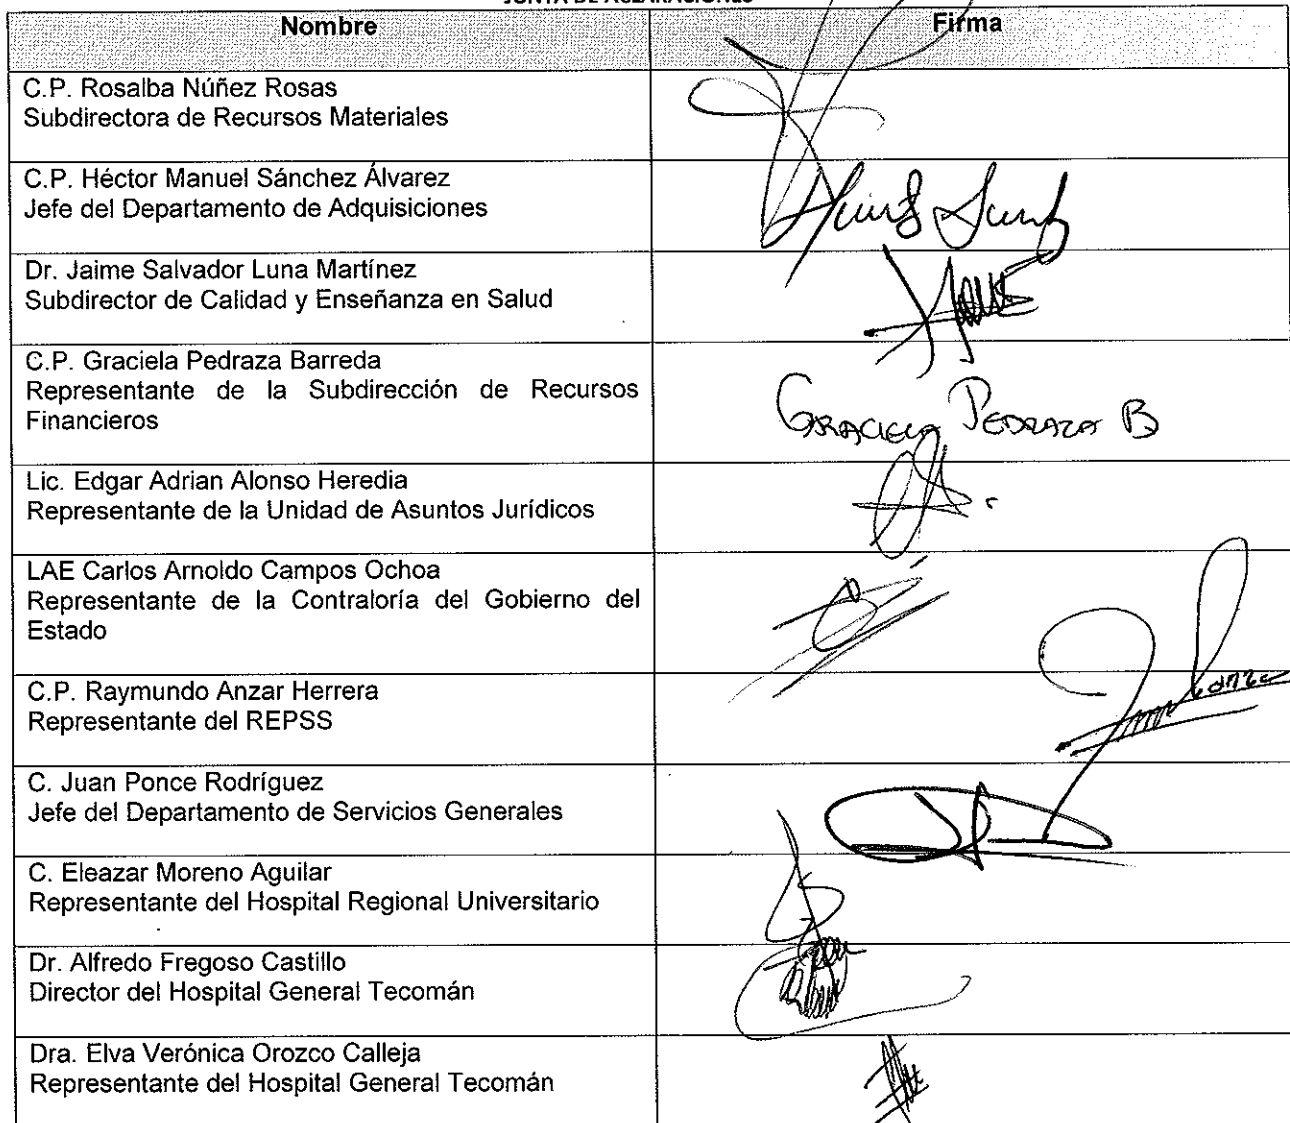 JUNTA DE ACLARACIONES
Nombre Firma
C.P. Rosalba Núñez Rosas
Subdirectora de Recursos Materiales
C.P. Héctor Manuel Sánchez Álvarez
Jefe del Departamento de Adquisiciones
Dr. Jaime Salvador Luna Martínez
Subdirector de Calidad y Enseñanza en Salud
C.P. Graciela Pedraza Barreda
Representante de la Subdirección de Recursos
Financieros
GRACIELA PEDRAZA B
Lic. Edgar Adrian Alonso Heredia
Representante de la Unidad de Asuntos Jurídicos
LAE Carlos Arnoldo Campos Ochoa
Representante de la Contraloría del Gobierno del
Estado
C.P. Raymundo Anzar Herrera
Representante del REPSS
C. Juan Ponce Rodríguez
Jefe del Departamento de Servicios Generales
C. Eleazar Moreno Aguilar
Representante del Hospital Regional Universitario
Dr. Alfredo Fregoso Castillo
Director del Hospital General Tecomán
Dra. Elva Verónica Orozco Calleja
Representante del Hospital General Tecomán